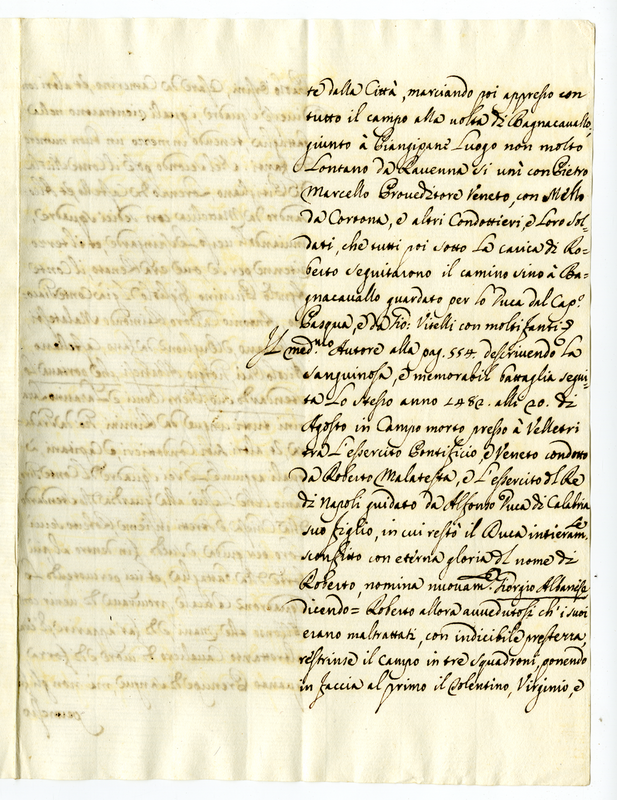 te dalla Città, marciando poi appresso con
tutto il campo alla volta di Bagnacavallo,
giunto à Piangipane Luogo non molto
Lontano da Ravenna si unì con Pietro
Marcello Proveditore Veneto, con Mello
da Cortona, e altri Condottieri, e Loro Sol=
dati, che tutti poi sotto La carica di Ro=
berto seguitarono il camino sino à Ba=
gnacavallo guardato per lo Duca dal Cap.º
Pasqua, e da Gio: Vitelli con molti fanti.
Il med.mo Autore alla pag. 554. descrivendo La
sanguinosa, e memorabil battaglia segui=
ta Lo stesso anno 1482. alli 20. di
Agosto in Campo morto presso à Velletri
tra L'essercito Pontificio, e Veneto condotto
da Roberto Malatesta, e L'essercito del Re
di Napoli guidato da Alfonso Duca di Calabria
suo figlio, in cui restò il Duca intieram.te
sconfitto con eterna gloria del nome di
Roberto, nomina nuovam.te Giorgio Albanese
dicendo= Roberto allora avvedutosi ch'i suoi
erano maltrattati, con indicibile prestezza
restrinse il campo in tre squadroni, ponendo
in faccia al primo il Tolentino, Virginio, e